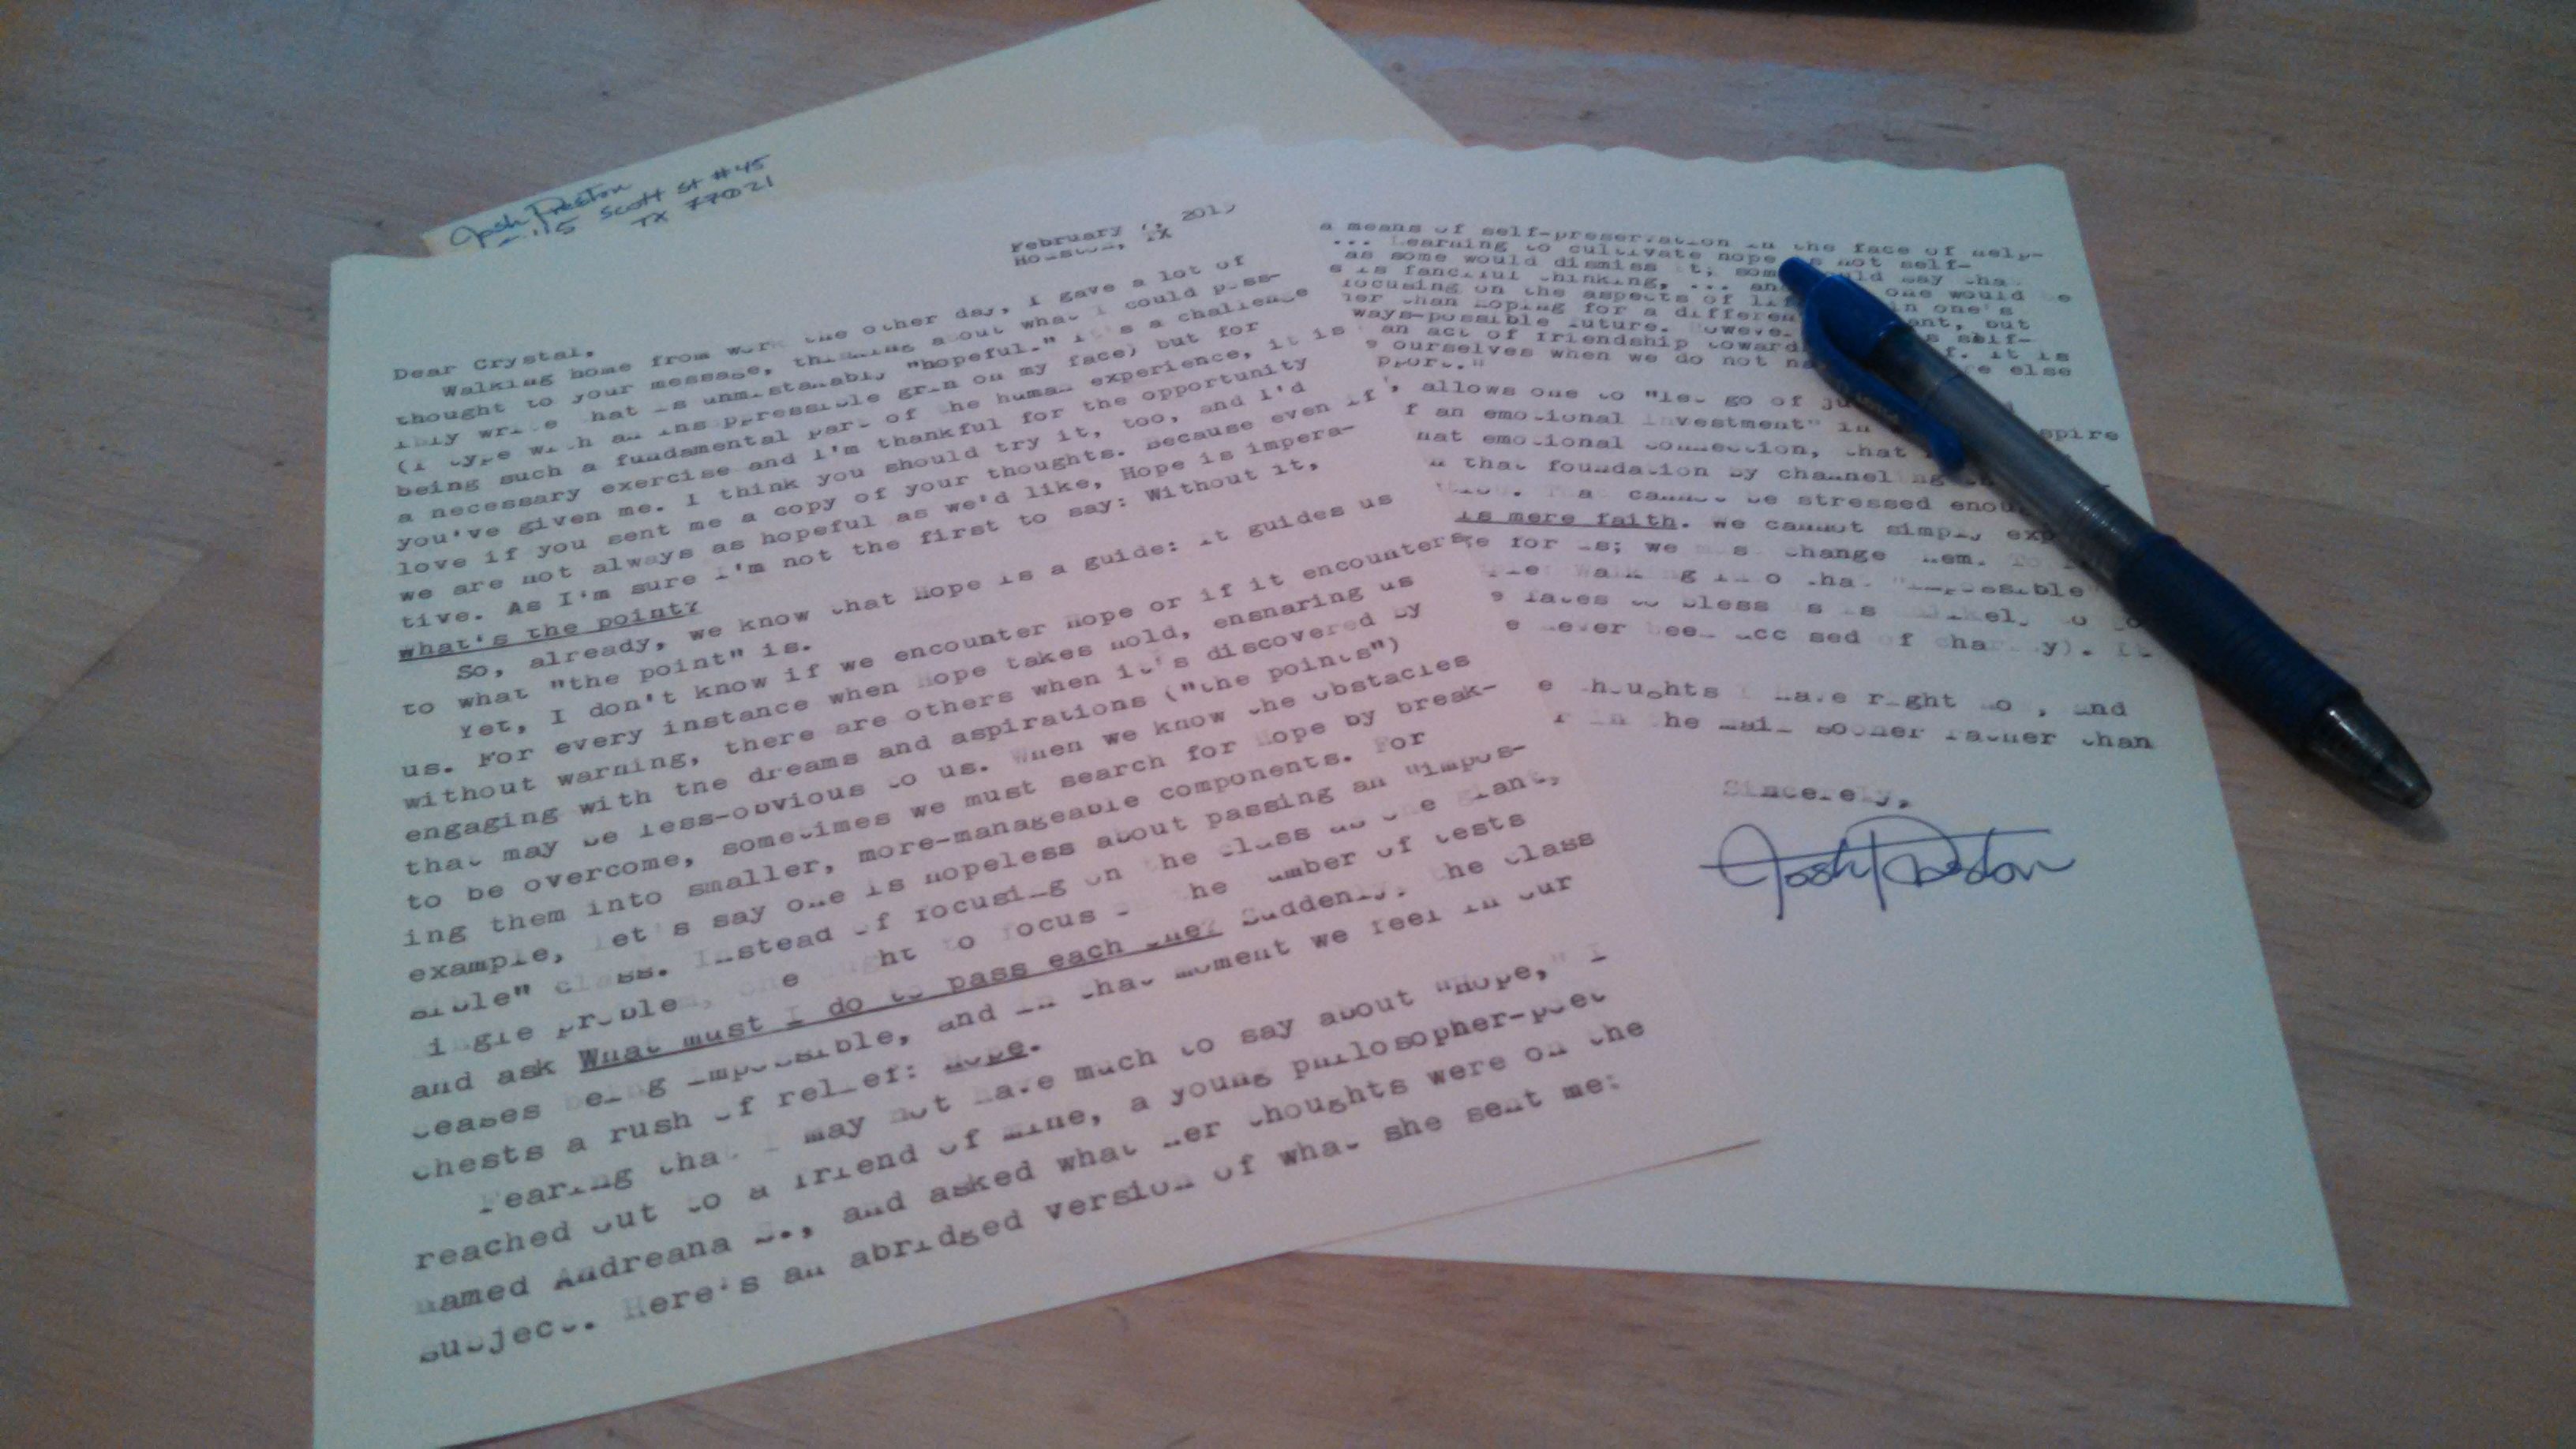 Josh Preston
Scott St #45
TX 77021
February 2015
Houston, TX
Dear Crystal,
Walking home from work the other day, I gave a lot of
thought to your message, thinking about what I could poss-
ibly write that is unmistakably "hopeful." It's a challenge
(I type with an insuppressible grin on my face) but for
being such a fundamental part of the human experience, it is
a necessary exercise and I'm thankful for the opportunity
you've given me. I think you should try it, too, and I'd
love if you sent me a copy of your thoughts. Because even if
we are not always as hopeful as we'd like, Hope is impera-
tive. As I'm sure I'm not the first to say: Without it,
what's the point?
So, already, we know that Hope is a guide: it guides us
to what "the point" is.
Yet, I don't know if we encounter Hope or if it encounters
us. For every instance when Hope takes hold, ensnaring us
without warning, there are others when it's discovered by
engaging with the dreams and aspirations ("the points")
that may be less-obvious to us. When we know the obstacles
to be overcome, sometimes we must search for Hope by break-
ing them into smaller, more-manageable components. For
example, let's say one is hopeless about passing an "impos-
sible" class. Instead of focusing on the class as one giant,
single problem, one ought to focus on the number of tests
and ask What must I do to pass each one? Suddenly, the class
ceases being impossible, and in that moment we feel in our
chests a rush of relief: Hope.
Fearing that I may not have much to say about "Hope," I
reached out to a friend of mine, a young philosopher-poet
named Andreana, and asked what her thoughts were on the
subject. Here's an abridged version of what she sent me:
a means of self-preservation in the face of help-
... Learning to cultivate hope is not self-
as some would dismiss it; some would say that
is fanciful thinking, ... and one would be
focusing on the aspects of life in one's
than hoping for a different but
ways-possible future. However self-
an act of friendship toward it is
ourselves when we do not else
pport."
allows one to "let go of
an emotional investment" in
that emotional connection, that
that foundation by channeling
cannot be stressed
is mere faith. We cannot simply
for us; we must change them. To
walking into that "impossible"
fates to bless us is unlikely to
never been accused of charity). It
thoughts I have right now, and
in the mail sooner rather than
Sincerely,
Josh Preston